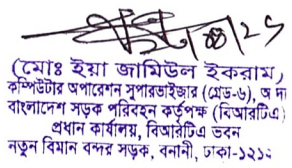 (মোঃ ইয়া জামিউল ইকরাম)
কম্পিউটার অপারেশন সুপারভাইজার (গ্রেড-৬), অ দা
বাংলাদেশ সড়ক পরিবহন কর্তৃপক্ষ (বিআরটিএ)
প্রধান কার্যালয়, বিআরটিএ ভবন
নতুন বিমান বন্দর সড়ক, বনানী, ঢাকা-১২১২